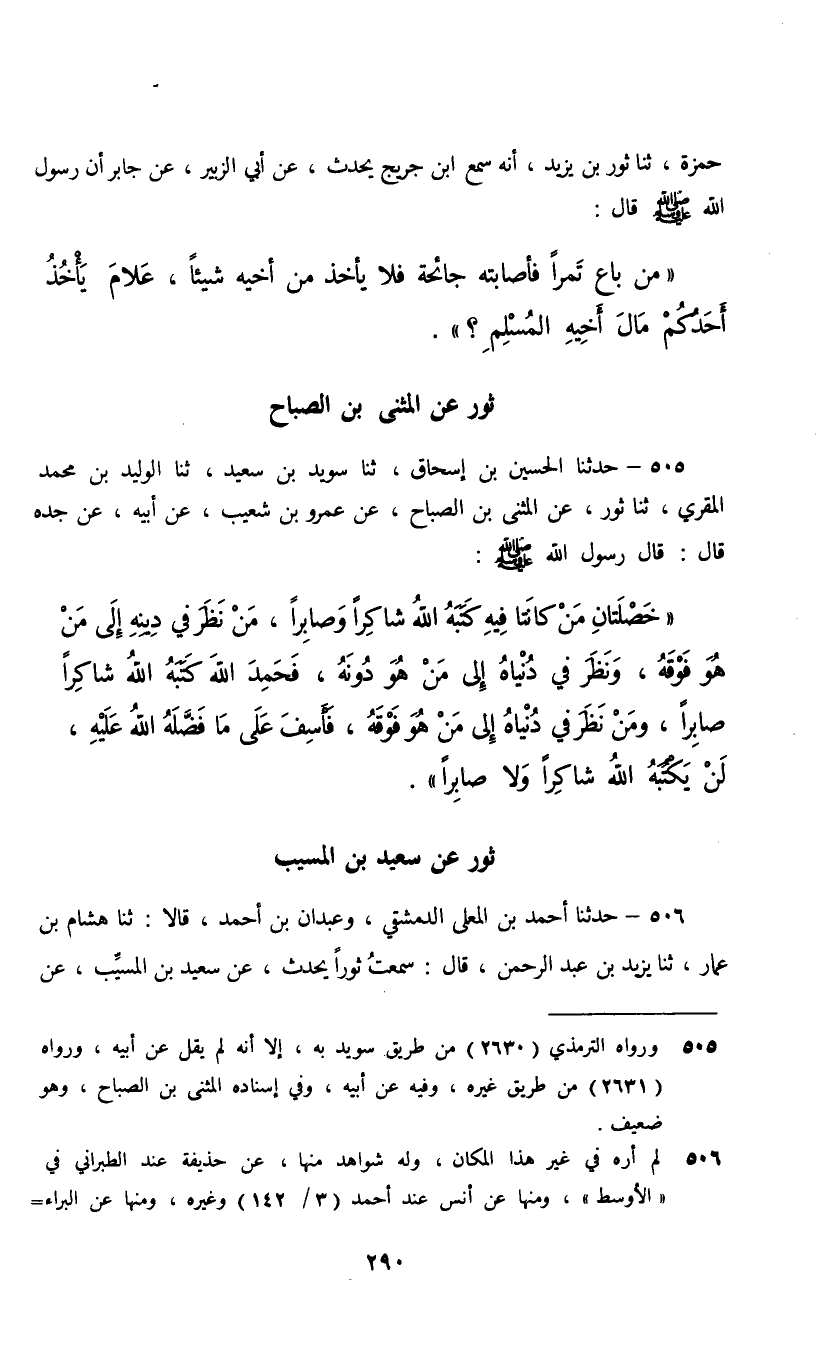 حمزة ، ثنا ثور بن يزيد ، أنه سمع ابن جريج يحدث ، عن أبي الزبير ، عن جابر أن رسول
الله ﷺ قال :
« من باع تَمراً فأصابته جائحة فلا يأخذ من أخيه شيئاً ، عَلامَ يَأْخُذُ
أَحَدُكُمْ مَالَ أَخِيهِ المُسْلِمِ ؟ » .
ثور عن المثنى بن الصباح
٥٠٥ – حدثنا الحسين بن إسحاق ، ثنا سويد بن سعيد ، ثنا الوليد بن محمد
المقري ، ثنا ثور ، عن المثنى بن الصباح ، عن عمرو بن شعيب ، عن أبيه ، عن جده
قال : قال رسول الله ﷺ :
« خَصْلَتانِ مَنْ كانَتا فِيهِ كَتَبَهُ اللهُ شاكِراً وَصابِراً ، مَنْ نَظَرَ في دِينِهِ إِلَى مَنْ
هُوَ فَوْقَهُ ، وَنَظَرَ في دُنْياهُ إِلى مَنْ هُوَ دُونَهُ ، فَحَمِدَ اللهَ كَتَبَهُ اللهُ شاكِراً
صابِراً ، ومَنْ نَظَرَ في دُنْياهُ إِلى مَنْ هُوَ فَوْقَهُ ، فَأَسِفَ عَلَى مَا فَضَّلَهُ اللهُ عَلَيْهِ ،
لَنْ يَكْتُبَهُ اللهُ شاكِراً وَلا صابِراً » .
ثور عن سعيد بن المسيب
٥٠٦ – حدثنا أحمد بن المعلى الدمشقي ، وعبدان بن أحمد ، قالا : ثنا هشام بن
عمار ، ثنا يزيد بن عبد الرحمن ، قال : سمعتُ ثوراً يحدث ، عن سعيد بن المسيِّب ، عن
٥٠٥ ورواه الترمذي ( ٢٦٣٠ ) من طريق سويد به ، إلا أنه لم يقل عن أبيه ، ورواه
( ٢٦٣١ ) من طريق غيره ، وفيه عن أبيه ، وفي إسناده المثنى بن الصباح ، وهو
ضعيف .
٥٠٦ لم أره في غير هذا المكان ، وله شواهد منها ، عن حذيفة عند الطبراني في
« الأوسط » ، ومنها عن أنس عند أحمد ( ٣ / ١٤٢ ) وغيره ، ومنها عن البراء=
٢٩٠